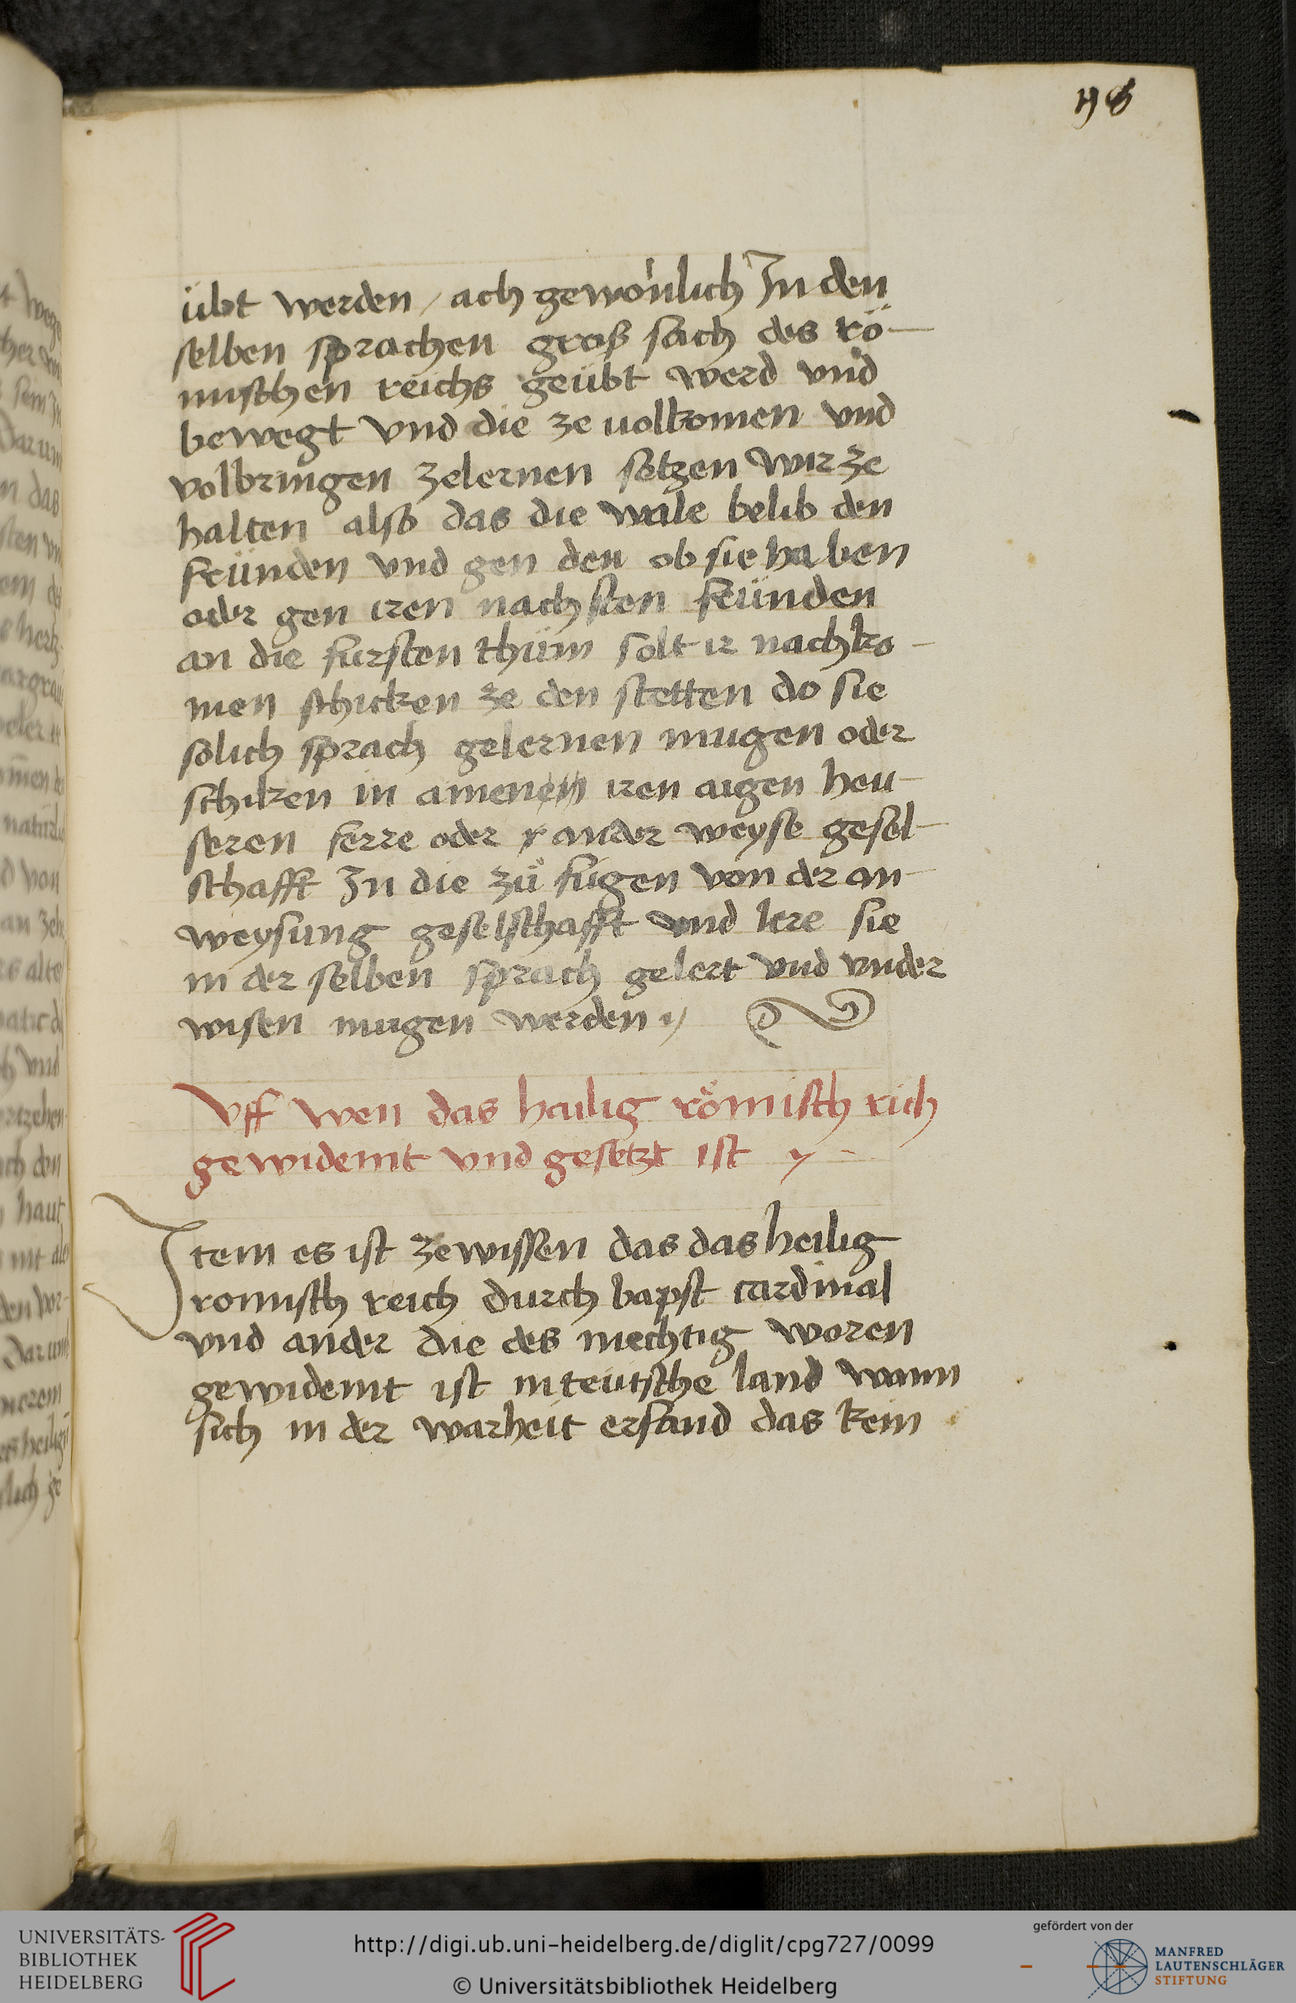 198
übt werden / ach gewonlich In den
selben sprachen groß sach des rö-
mischen reichs geübt werd vnd
bewegt vnd die ze uolkomen vnd
volbringen zelernen setzen wir ze
halten also das die wale belib den
freünden vnd gen den ob sie haben
oder gen iren nachsten freünden
an die fursten thüm solt ir nachko-
men schicken ze den stetten do sie
sölich sprach gelernen mugen oder
schiken in iren aigen heu-
seren ferre oder ander weyse gesel-
schafft In die zů fügen von der an-
weysung geselschafft vnd lere sie
in der selben sprach gelert vnd vnder
wisen mugen werden
Vff wen das heilig römisch rich
gewidemt vnd gesetzt ist
Item es ist zewissen das das heilig
romisch reich durch bapst cardinal
vnd ander die des mechtig woren
gewidemt ist in teutsche land wann
sich in der warheit erfand das kein
UNIVERSITÄTS-
BIBLIOTHEK
HEIDELBERG
http://digi.ub.uni-heidelberg.de/diglit/cpg727/0099
© Universitätsbibliothek Heidelberg
gefördert von der
MANFRED
LAUTENSCHLÄGER
STIFTUNG